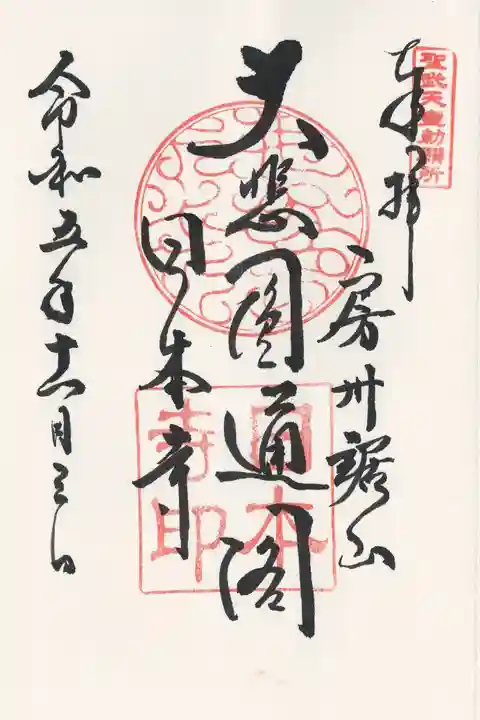 聖武天皇勅願所
奉拝
房州鋸山
大悲圓通閣
日本寺
令和五年十一月三日
日本寺印